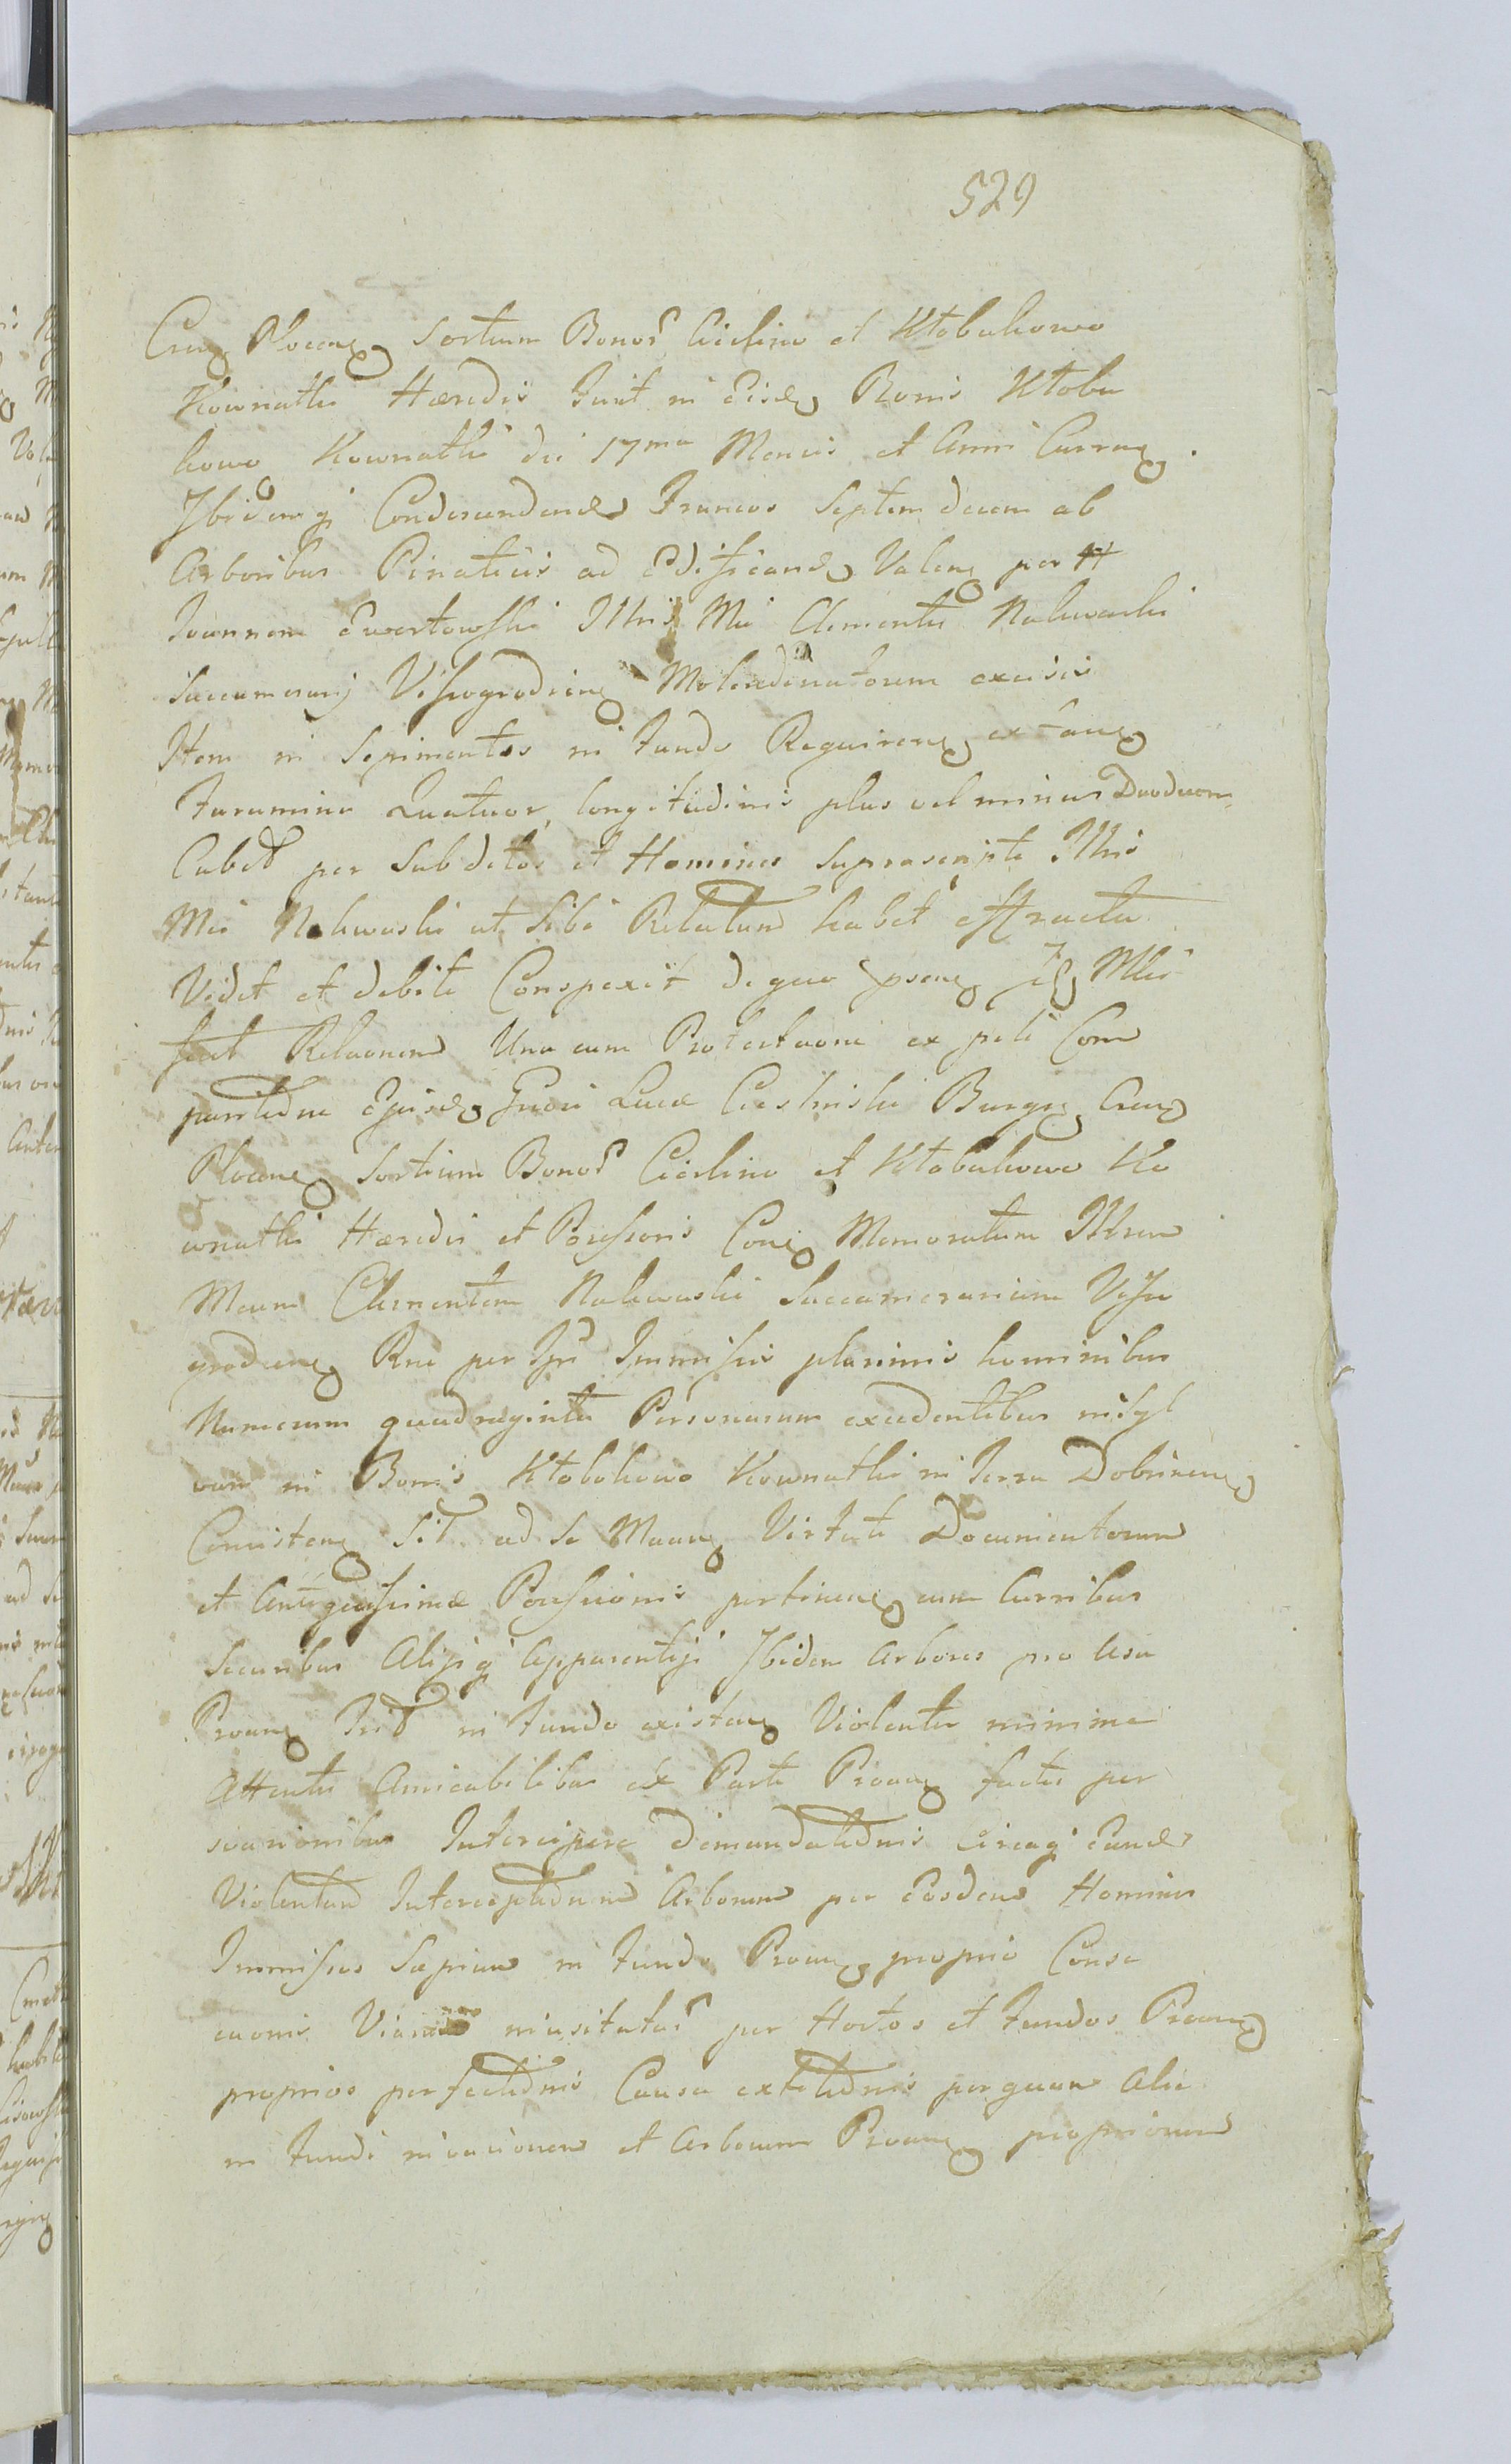 529
Creng Ploceng Sortium Bonor Cieslino et Ktobukowo
Kownatki Hæredis fuit in Eisdg Bonis Ktobu
kowo Kownatki die 17ma Mensis et Anni Curreng.
Ibidemq Condescendendo Truncos Septemdecem ab
Arboribus Pinaticis ad Ædificand Valeng per H
Ioannem Ewertowski Illris Mci Clementis Nakwaski
Succamerarij Vissogrodieng Molendinatorem excisis
Item in Sepimentos in fundo Requireng extang
Foramina Quatuor, longitudinis plus vel minus Duodecem
Cubit per Subditos et Homines Suprascripti Illris
Mci Nakwaski ut Sibi Relatum habet effracta
Vidit et debite Conspexit de quo pseng
fecit Relaonem Una cum Protestaone ex peli Com
paritione Ejusdg Gnosi Lucæ Cieslinski Burgg Creng
Ploceng Sortium Bonor Cieslino et Ktobukowo Ko
wnatki Hæredis et Possessoris Cong Memoratum Illrem
Mcum Clementem Nakwaski Succamerarium Visso
grodieng Rne per Ipm Immissis plurimis hominibus
Numerum quadraginta Personarum excedentibus in Syl
vam in Bonis Ktobokowo Kownatki in Terra Dobrineng
Consisteng Sit ad se Maneng Virtute Documentorum
et Antiquissimæ Possessionis pertineng cum Curribus
Securibus Alijsq Apparentijs Ibidem Arbores pro Usu
Proang in fundo existeng Violenter minime
Attentis Amicabilibus ex Parte Proang factis per
svasionibus Intercipere demandationis Circaq Eandem
Violentam Interceptionem Arborum per Eosdem Homines
Immissos Sæpius in fundo Proang proprio Consa
caonis Viarum inusitatar per Hortos et Fundos Proang
proprios perfectionis Causa extitionis per quam Alie
m fundi invasionem et Arborum Proang propriorum